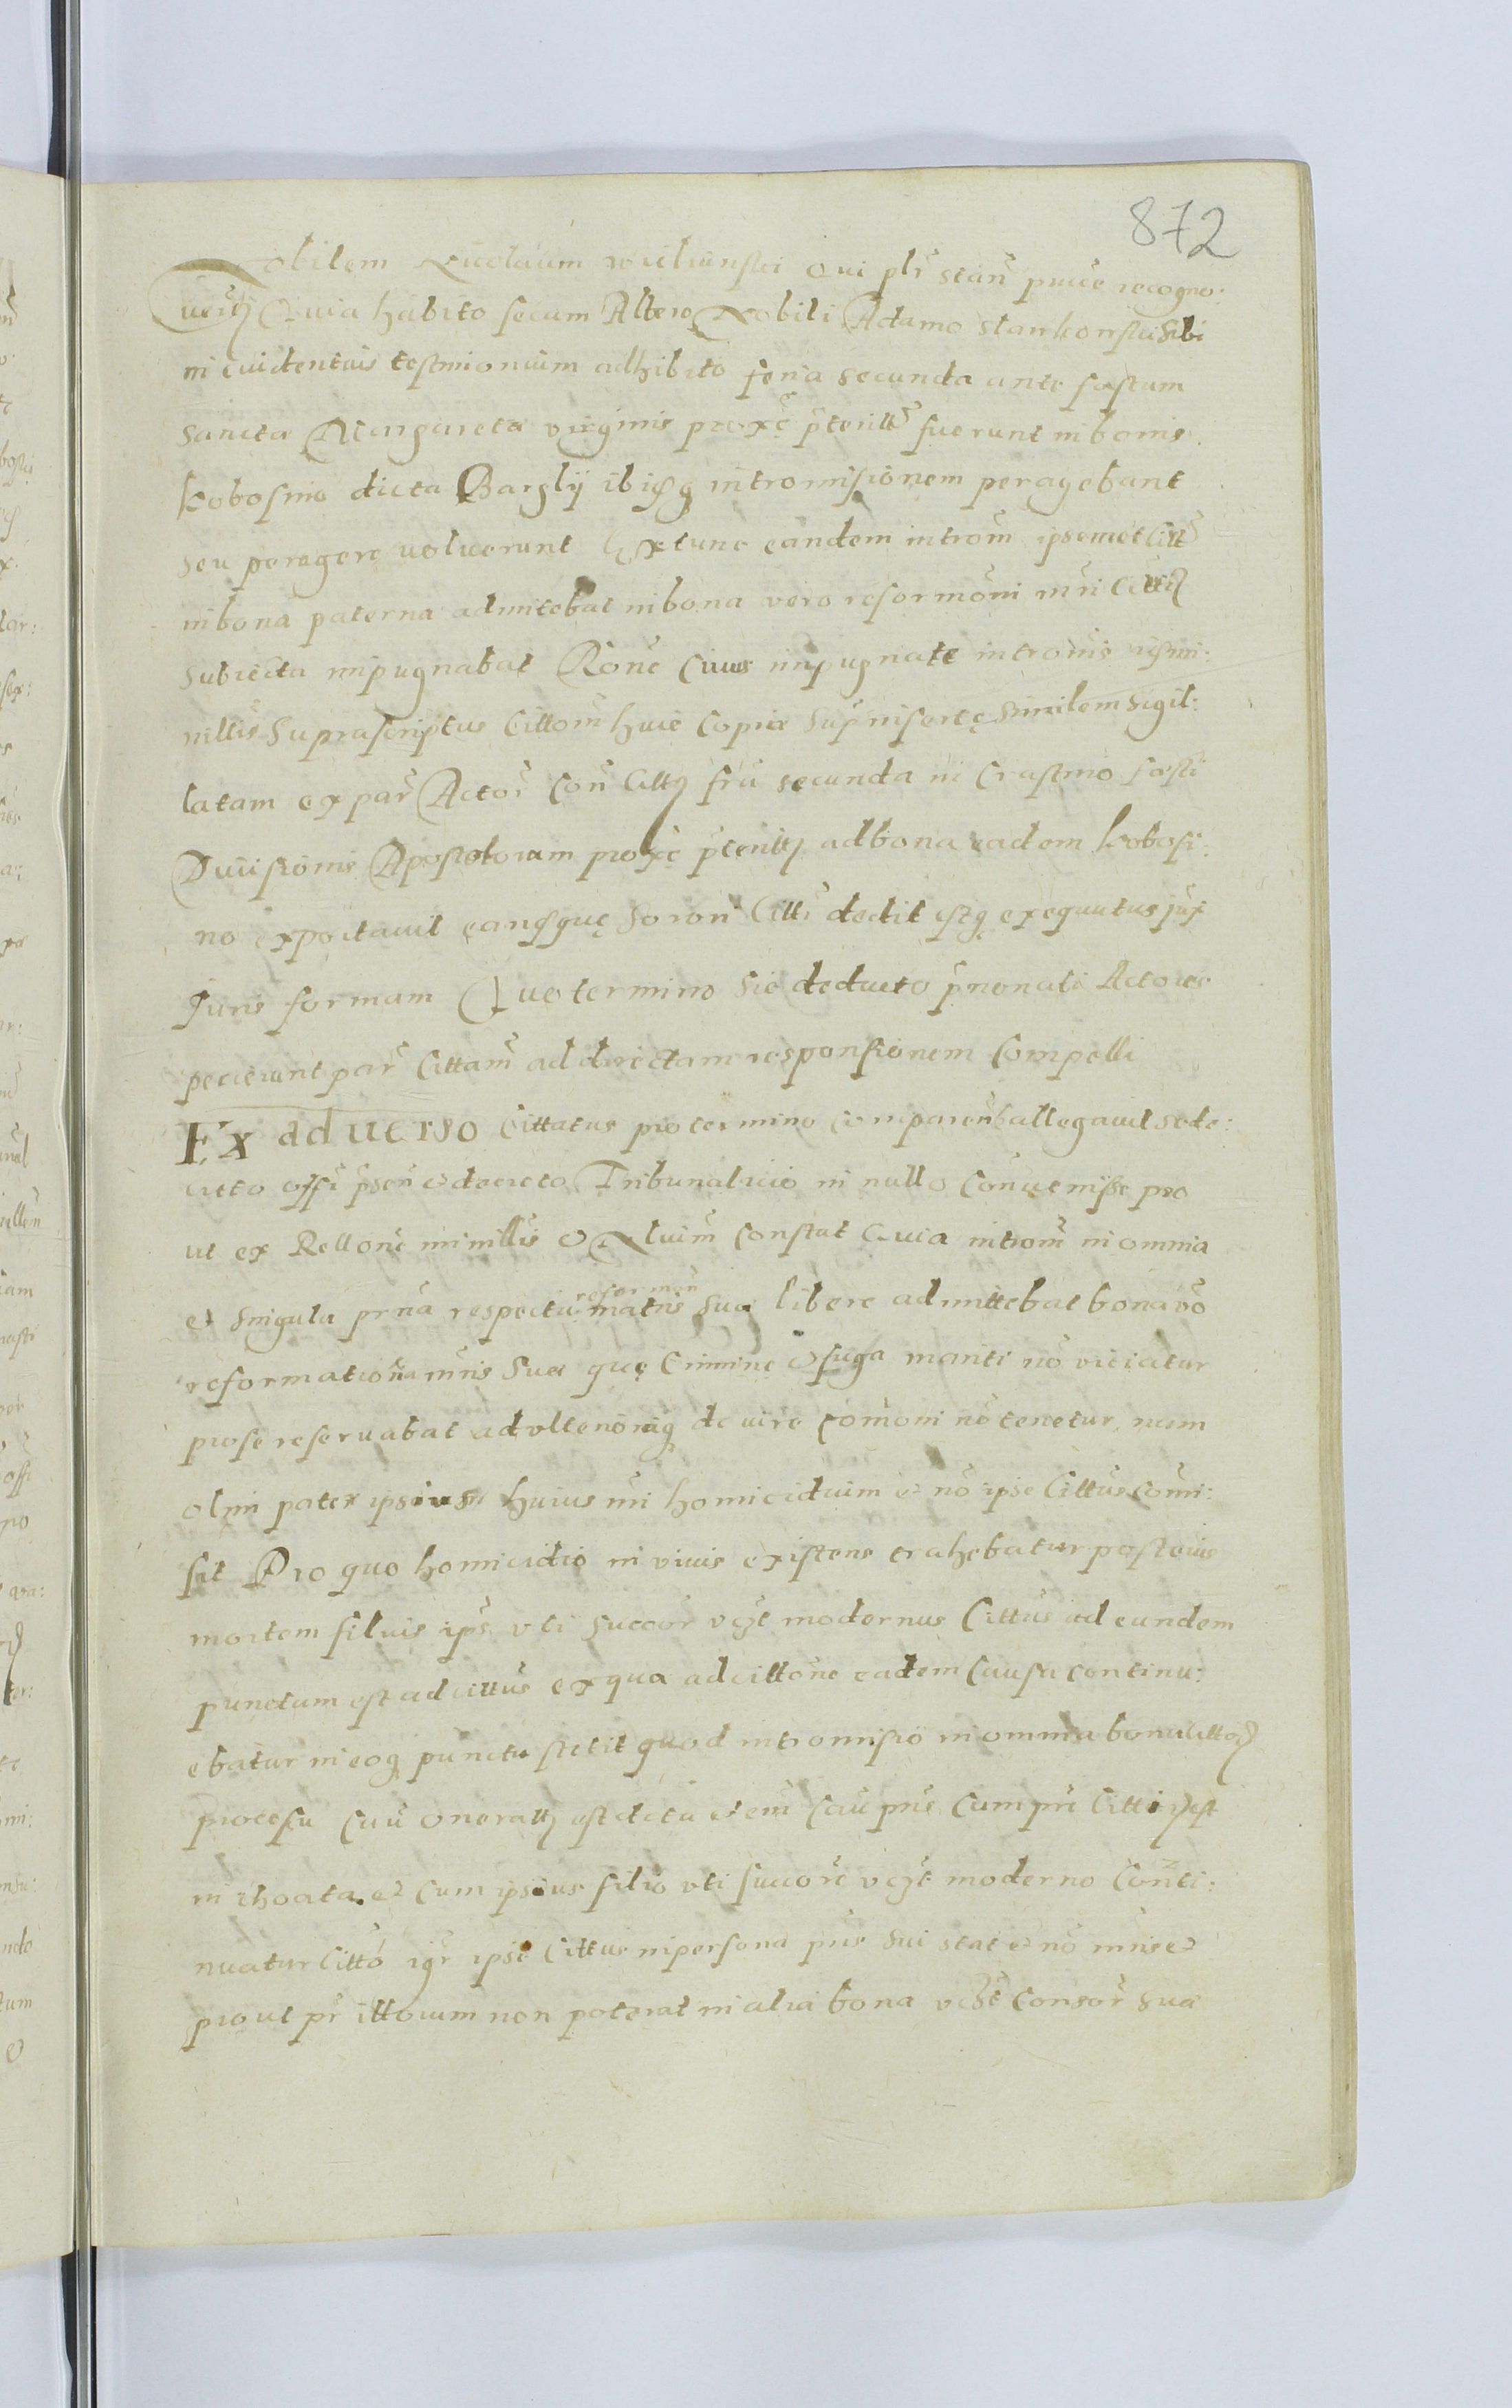 872
Nobilem Nicolaum Wieliunski Qui plr stans prnce recogno:
uerũt Quia habito secum Altero Nobili Adamo Stankonski sibi
in euidentius testimonium adhibito feria secunda ante festum
Sanctæ Margaretæ virginis proxẽ pteritũ fuerunt in bonis
kobosino dicta Barglÿ ibiqꝫ intromisionem peragebant
seu peragere uoluerunt Extunc eandem introm̃ ipsemet Citt̃
in bona paterna admitebat in bona vero reformõni mr̃i Citti
subiecta impugnabat Rone Cuius impugnatæ intromis
nillis Suprascriptus Cittom̃ huic copiæ sup̃ insertę similem sigil:
latam ex par̃ Actor̃ con̄ Citt̃ fr̃ia secunda in Crastino festi
Diuisionis Apostolorum proxẽ pteriti ad bona eadem kobosi:
no exportauit eanqꝫ Soron̄ Citti dedit estqꝫ exequutus jux̃
Juris formam Quo termino Sic deducto p̃nonati Actores
pecierunt par̃ Cittam̃ ad directam responsionem Compelli
Ex aduerso Cittatus pro termino comparen̄ allegauit se de:
creto offi p̃sen̄ et decreto Tribunalicio in nullo Conuenisse pro
ut ex Rellone minillis et Nluim̃ constat Quia introm̃ in omnia
et singula prña respectu reformõn matris suæ libere admittebat bona võ
reformationa mr̃is Suæ quę Crimine et fuga mariti nõ viciatur
pro se reseruabat ad vlterioraqꝫ de iure comõni nõ tenetur nam
olim pater ipsius huius mi homicidium et nõ ipse Cittus Comi:
sit Pro quo homicidio in viuis existens trahebatur post eius
mortem filius ips̃ vti succor̃ vgt̃ modernus Cittus ad eundem
punctum est adcittus ex qua adcittone eadem Causa continu:
ebatur in eoqꝫ punctu stetit quod intromisio in omnia bona Citto
procesu Cau oneratt est dcta etem̃ cau pris cum pre Citti est
inchoata et cum ipsius filio vti succore vgt̃ moderno Conti:
nuatur Citto igr̃ ipse Cittus in persona pris sui stat et nõ mr̃is et
prout pr̃ illorum non poterat in alia bona vgt̃ Consor̃ Suæ